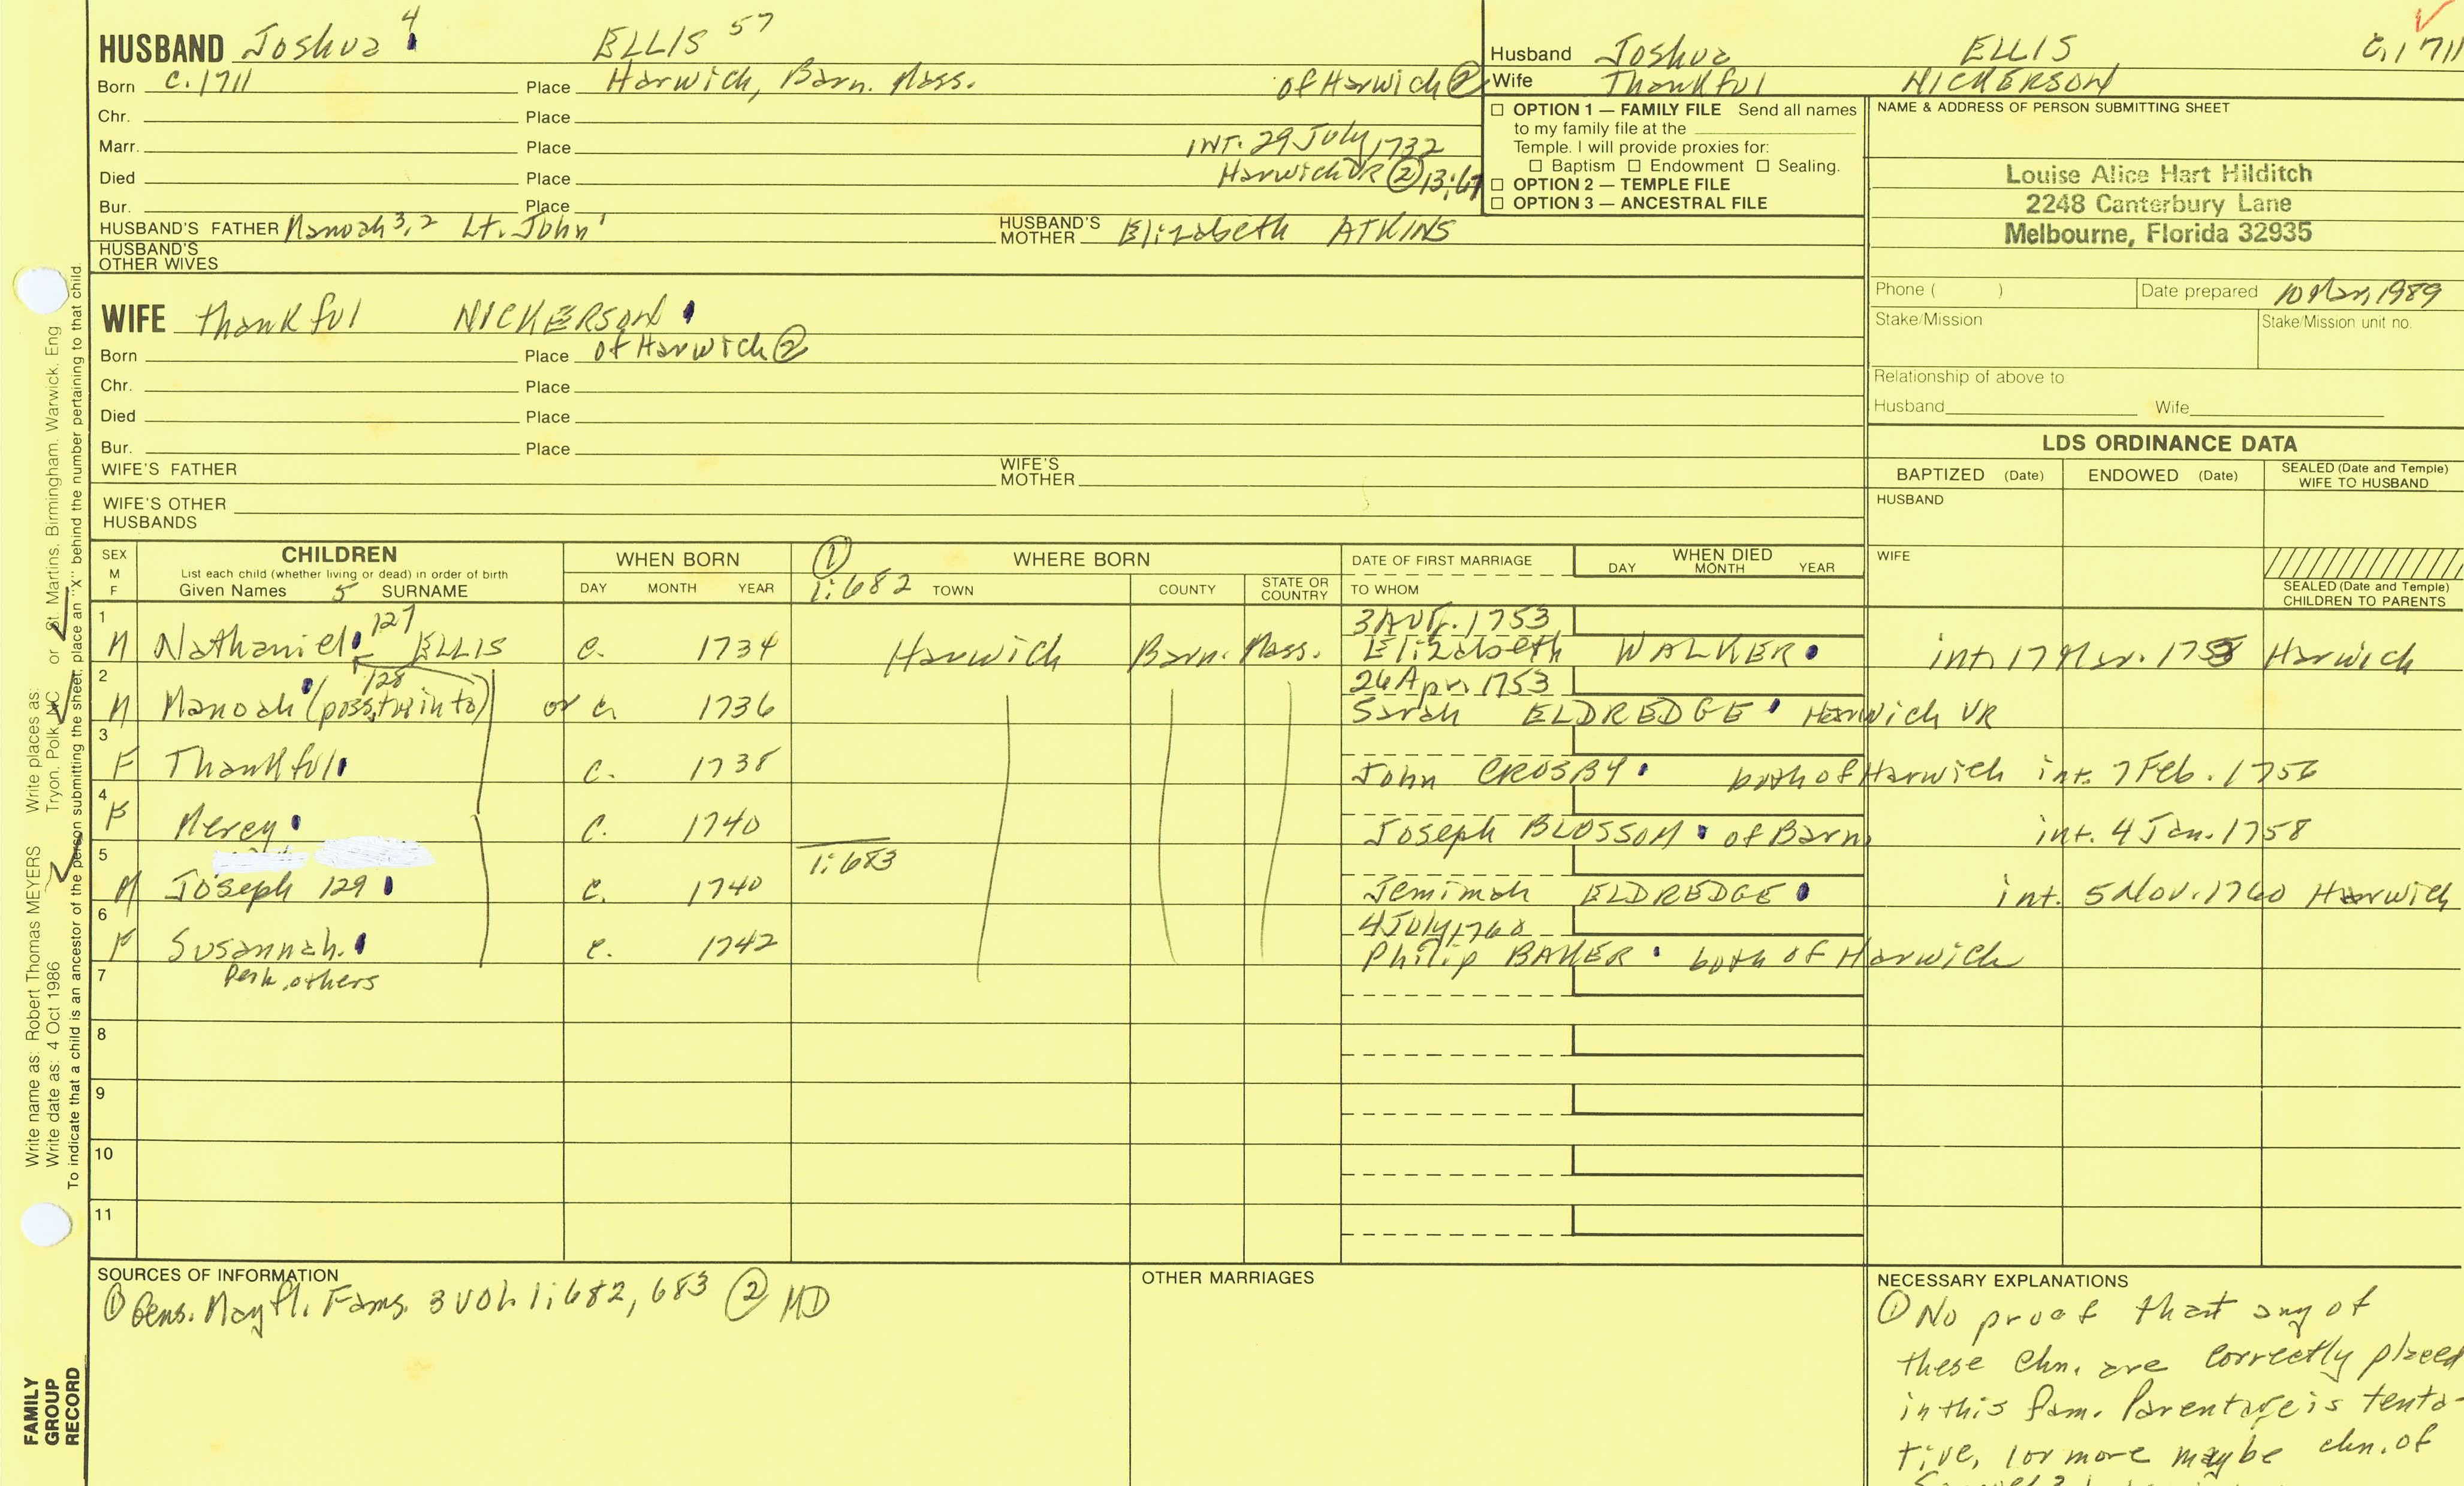 HUSBAND Joshua 4 ELLIS 57
Born c. 1711 Place Harwich, Barn. Mass. of Harwich ②
Chr. Place
Marr. Place INT. 29 July 1732
Died Place Harwich VR ② 13:67
Bur. Place
HUSBAND'S FATHER Manoah 3, 2 Lt. John 1 HUSBAND'S MOTHER Elizabeth ATKINS
HUSBAND'S OTHER WIVES
WIFE Thankful NICKERSON
Born Place of Harwich ②
Chr. Place
Died Place
Bur. Place
WIFE'S FATHER WIFE'S MOTHER
WIFE'S OTHER HUSBANDS
Husband Joshua ELLIS c. 1711
Wife Thankful NICKERSON
☐ OPTION 1 — FAMILY FILE Send all names
to my family file at the
Temple. I will provide proxies for:
☐ Baptism ☐ Endowment ☐ Sealing.
☐ OPTION 2 — TEMPLE FILE
☐ OPTION 3 — ANCESTRAL FILE
NAME & ADDRESS OF PERSON SUBMITTING SHEET
Louise Alice Hart Hilditch
2248 Canterbury Lane
Melbourne, Florida 32935
Phone ( ) Date prepared 10 Mar 1989
Stake/Mission Stake/Mission unit no.
Relationship of above to
Husband Wife
LDS ORDINANCE DATA
BAPTIZED (Date) ENDOWED (Date) SEALED (Date and Temple) WIFE TO HUSBAND
HUSBAND
WIFE
SEALED (Date and Temple)
CHILDREN TO PARENTS
SEX M F CHILDREN WHEN BORN ① WHERE BORN DATE OF FIRST MARRIAGE WHEN DIED
List each child (whether living or dead) in order of birth
Given Names 5 SURNAME DAY MONTH YEAR 1:682 TOWN COUNTY STATE OR COUNTRY TO WHOM DAY MONTH YEAR
1 3 Aug. 1753
M Nathaniel 127 ELLIS c. 1734 Harwich Barn. Mass. Elizabeth WALKER int. 17 Mar. 1753 Harwich
2 128 26 Apr. 1753
M Manoah (poss. twin to) or c. 1736 Sarah ELDREDGE Harwich VR
3
F Thankful c. 1738 John CROSBY both of Harwich int. 7 Feb. 1756
4
F Mercy c. 1740 Joseph BLOSSOM of Barn. int. 4 Jan. 1758
5 1:683
M Joseph 129 c. 1740 Jemimah ELDREDGE int. 5 Nov. 1760 Harwich
6 4 July 1760
F Susannah c. 1742 Philip BAKER both of Harwich
7 Perh. others
8
9
10
11
SOURCES OF INFORMATION
① Gens. Mayfl. Fams. 3 vol. 1:682, 683 ② MD
OTHER MARRIAGES
NECESSARY EXPLANATIONS
① No proof that any of
these chn. are correctly placed
in this fam. Parentage is tenta-
tive, 1 or more may be chn. of
Write name as: Robert Thomas MEYERS Write places as: Tryon, Polk, NC or St Martins, Birmingham, Warwick, Eng
Write date as: 4 Oct 1986
To indicate that a child is an ancestor of the person submitting the sheet, place an "X" behind the number pertaining to that child.
FAMILY
GROUP
RECORD